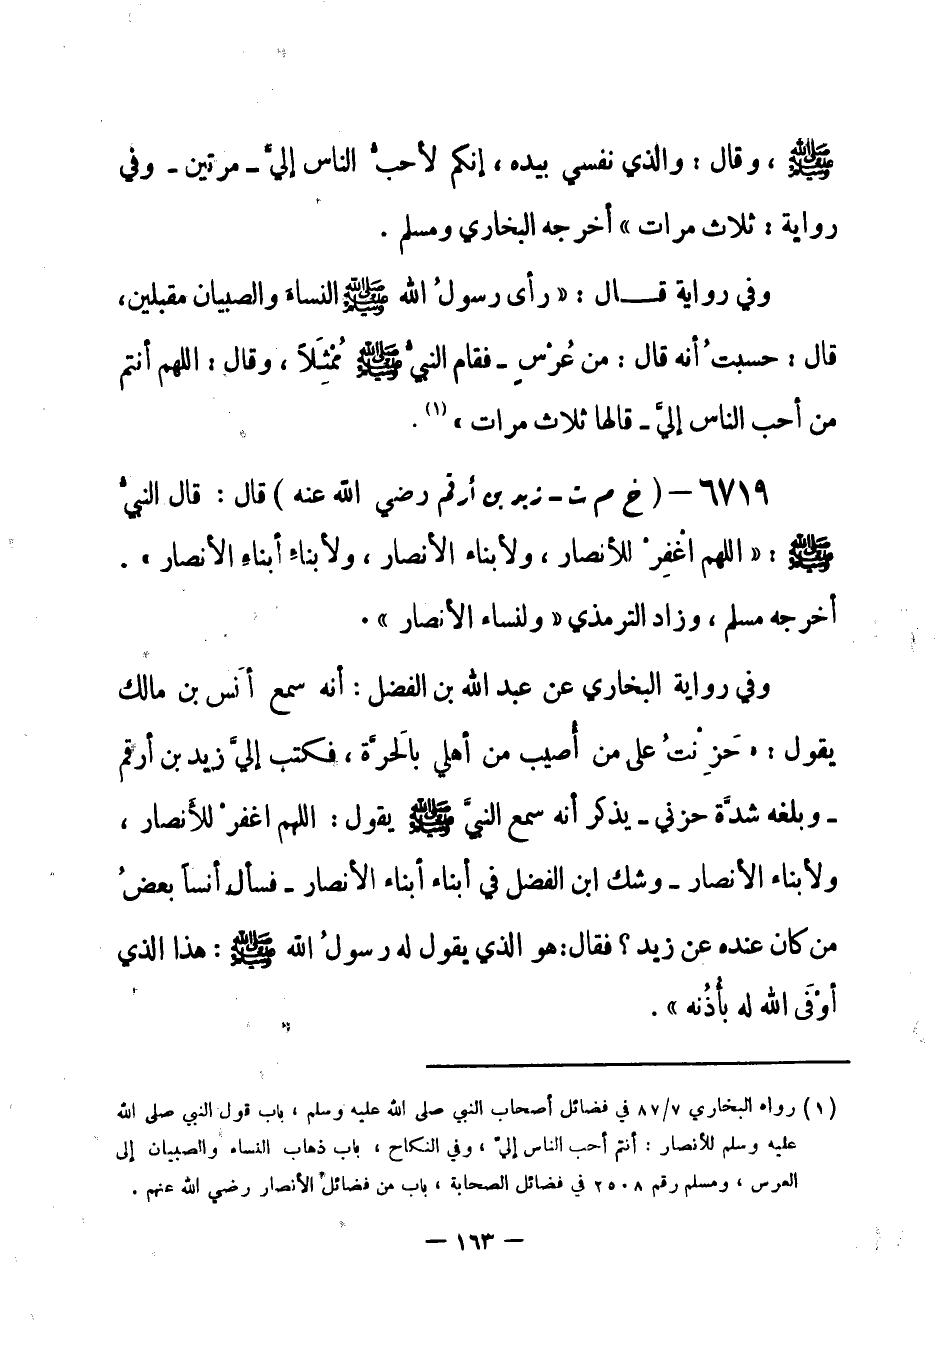 ﷺ ، وقال : والذي نفسي بيده ، إنكم لأحبُّ الناس إليَّ ـ مرتين ـ وفي
رواية : ثلاث مرات » أخرجه البخاري ومسلم .
وفي رواية قـــال : « رأى رسولُ الله ﷺ النساءَ والصبيان مقبلين،
قال : حسبتُ أنه قال : من عُرْسٍ ـ فقام النبيُّ ﷺ مُمْثِلاً ، وقال : اللهم أنتم
من أحب الناس إليَّ ـ قالها ثلاث مرات » (١) .
٦٧١٩ – ( خ م ت ـ زيد بن أرقم رضي الله عنه ) قال : قال النبيُّ
ﷺ : « اللهم اغْفِرْ للأنصار ، ولأبناء الأنصار ، ولأبناءِ أبناءِ الأنصار » .
أخرجه مسلم ، وزاد الترمذي « ولنساء الأنصار » .
وفي رواية البخاري عن عبد الله بن الفضل : أنه سمع أنَس بن مالك
يقول : « حَزِنْتُ على من أُصيب من أهلي بالَحرَّة ، فكتب إليَّ زيد بن أرقم
ـ وبلغه شدَّة حزني ـ يذكر أنه سمع النبيَّ ﷺ يقول : اللهم اغفرْ للأَنصار ،
ولأبناء الأنصار ـ وشك ابن الفضل في أبناء أبناء الأنصار ـ فسأل أنساً بعضُ
من كان عنده عن زيد ؟ فقال: هو الذي يقول له رسولُ الله ﷺ : هذا الذي
أوْفَى الله له بأُذُنه » .
(١) رواه البخاري ٨٧/٧ في فضائل أصحاب النبي صلى الله عليه وسلم ، باب قول النبي صلى الله
عليه وسلم للأنصار : أنتم أحب الناس إليَّ ، وفي النكاح ، باب ذهاب النساء والصبيان إلى
العرس ، ومسلم رقم ٢٥٠٨ في فضائل الصحابة ، باب من فضائل الأنصار رضي الله عنهم .
– ١٦٣ –